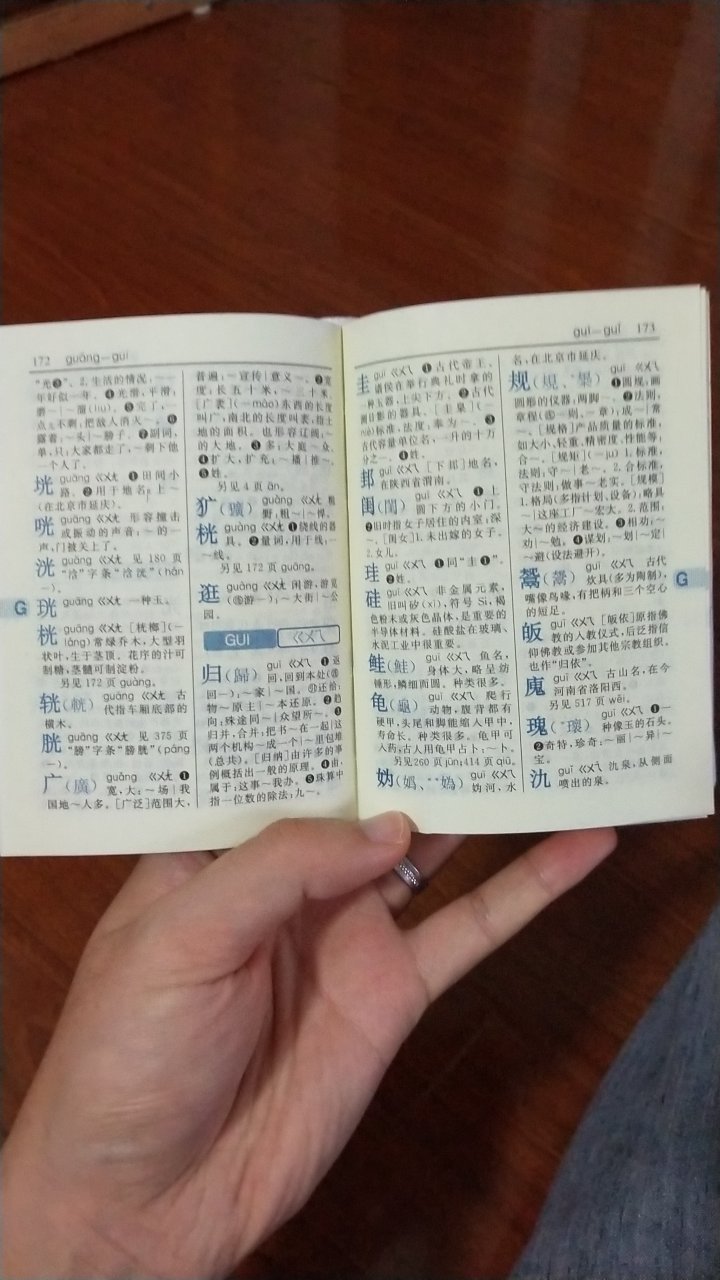 172 guāng—guī
“光❸”。2.生活的情况:一
年好似一年。❹光滑,平滑:
磨~|~溜(liu)。❺完了,一
点儿不剩:把敌人消灭~。❻
露着:~头|~膀子。❼副词,
单,只:大家都走了,~剩下他
一个人了。
垙 guāng ㄍㄨㄤ ❶田间小
路。❷用于地名:上~
(在北京市延庆)。
咣 guāng ㄍㄨㄤ 形容撞击
或振动的声音:~的一
声,门被关上了。
洸 guāng ㄍㄨㄤ 见 180 页
“浛”字条“浛洸”(hán
—)。
珖 guāng ㄍㄨㄤ 一种玉。
桄 guāng ㄍㄨㄤ [桄榔](—
láng)常绿乔木,大型羽
状叶,生于茎顶。花序的汁可
制糖,茎髓可制淀粉。
另见 172 页 guàng。
轨(輄) guāng ㄍㄨㄤ 古
代指车厢底部的
横木。
胱 guāng ㄍㄨㄤ 见 375 页
“膀”字条“膀胱”(páng
—)。
广(廣) guǎng ㄍㄨㄤ ❶
宽,大:~场|我
国地~人多。[广泛]范围大,
普遍:~宣传|意义~。❷宽
度:长五十米,~三十米。
[广袤](—mào)东西的长度
叫广,南北的长度叫袤,指土
地的面积。也形容辽阔:~
的大地。❸多:大庭~众。
❹扩大,扩充:~播|推~。
❺姓。
另见 4 页 ān。
犷(獷) guǎng ㄍㄨㄤ 粗
野:粗~|~悍。
桄 guàng ㄍㄨㄤ ❶绕线的器
具。❷量词,用于线:一
~线。
另见 172 页 guāng。
逛 guàng ㄍㄨㄤ 闲游,游览
(㊣游—):~大街|~公
园。
GUI ㄍㄨㄟ
归(歸) guī ㄍㄨㄟ ❶返
回,回到本处(㊣
回—):~家|~国。㊗还给:
物~原主|~本还原。❷趋
向:殊途同~|众望所~。❸
归并,合并:把书~在一起|这
两个机构~成一个|~里包堆
(总共)。[归纳]由许多的事
例概括出一般的原理。❹由,
属于:这事~我办。❺珠算中
指一位数的除法:九~。
G
guī—guǐ 173
圭 guī ㄍㄨㄟ ❶古代帝王、
诸侯在举行典礼时拿的
一种玉器,上尖下方。❷古代
测日影的器具。[圭臬](—
niè)标准,法度:奉为~。❸
古代容量单位名,一升的十万
分之一。❹姓。
邽 guī ㄍㄨㄟ [下邽]地名,
在陕西省渭南。
闺(閨) guī ㄍㄨㄟ ❶上
圆下方的小门。
❷旧时指女子居住的内室:深
~。[闺女]1.未出嫁的女子。
2.女儿。
珪 guī ㄍㄨㄟ ❶同“圭❶”。
❷姓。
硅 guī ㄍㄨㄟ 非金属元素,
旧叫矽(xī),符号 Si,褐
色粉末或灰色晶体,是重要的
半导体材料。硅酸盐在玻璃、
水泥工业中很重要。
鲑(鮭) guī ㄍㄨㄟ 鱼名,
身体大,略呈纺
锤形,鳞细而圆。种类很多。
龟(龜) guī ㄍㄨㄟ 爬行
动物,腹背都有
硬甲,头尾和脚能缩入甲中,
寿命长。种类很多。龟甲可
入药;古人用龟甲占卜:~卜。
另见260 页 jūn;414 页 qiū。
妫(媯、*嬀) guī ㄍㄨㄟ
妫河,水
名,在北京市延庆。
规(規、*槼) guī ㄍㄨㄟ
❶圆规,画
圆形的仪器:两脚~。❷法则,
章程(㊣—则、—章):成~|常
~。[规格]产品质量的标准,
如大小、轻重、精密度、性能等:
合~。[规矩](—ju)1.标准,
法则:守~|老~。2.合标准,
守法则:做事~老实。[规模]
1.格局(多指计划、设备):略具
~|这座工厂~宏大。2.范围:
大~的经济建设。❸相劝:~
劝|~勉。❹谋划:~划|~定|
~避(设法避开)。
鬶(鬹) guī ㄍㄨㄟ 古代
炊具(多为陶制),
嘴像鸟喙,有把柄和三个空心
的短足。
皈 guī ㄍㄨㄟ [皈依]原指佛
教的入教仪式,后泛指信
仰佛教或参加其他宗教组织。
也作“归依”。
廆 guī ㄍㄨㄟ 古山名,在今
河南省洛阳西。
另见 517 页 wěi。
瑰(*瓌) guī ㄍㄨㄟ ❶一
种像玉的石头。
❷奇特,珍奇:~丽|~异|~
宝。
氿 guǐ ㄍㄨㄟ 氿泉,从侧面
喷出的泉。
G